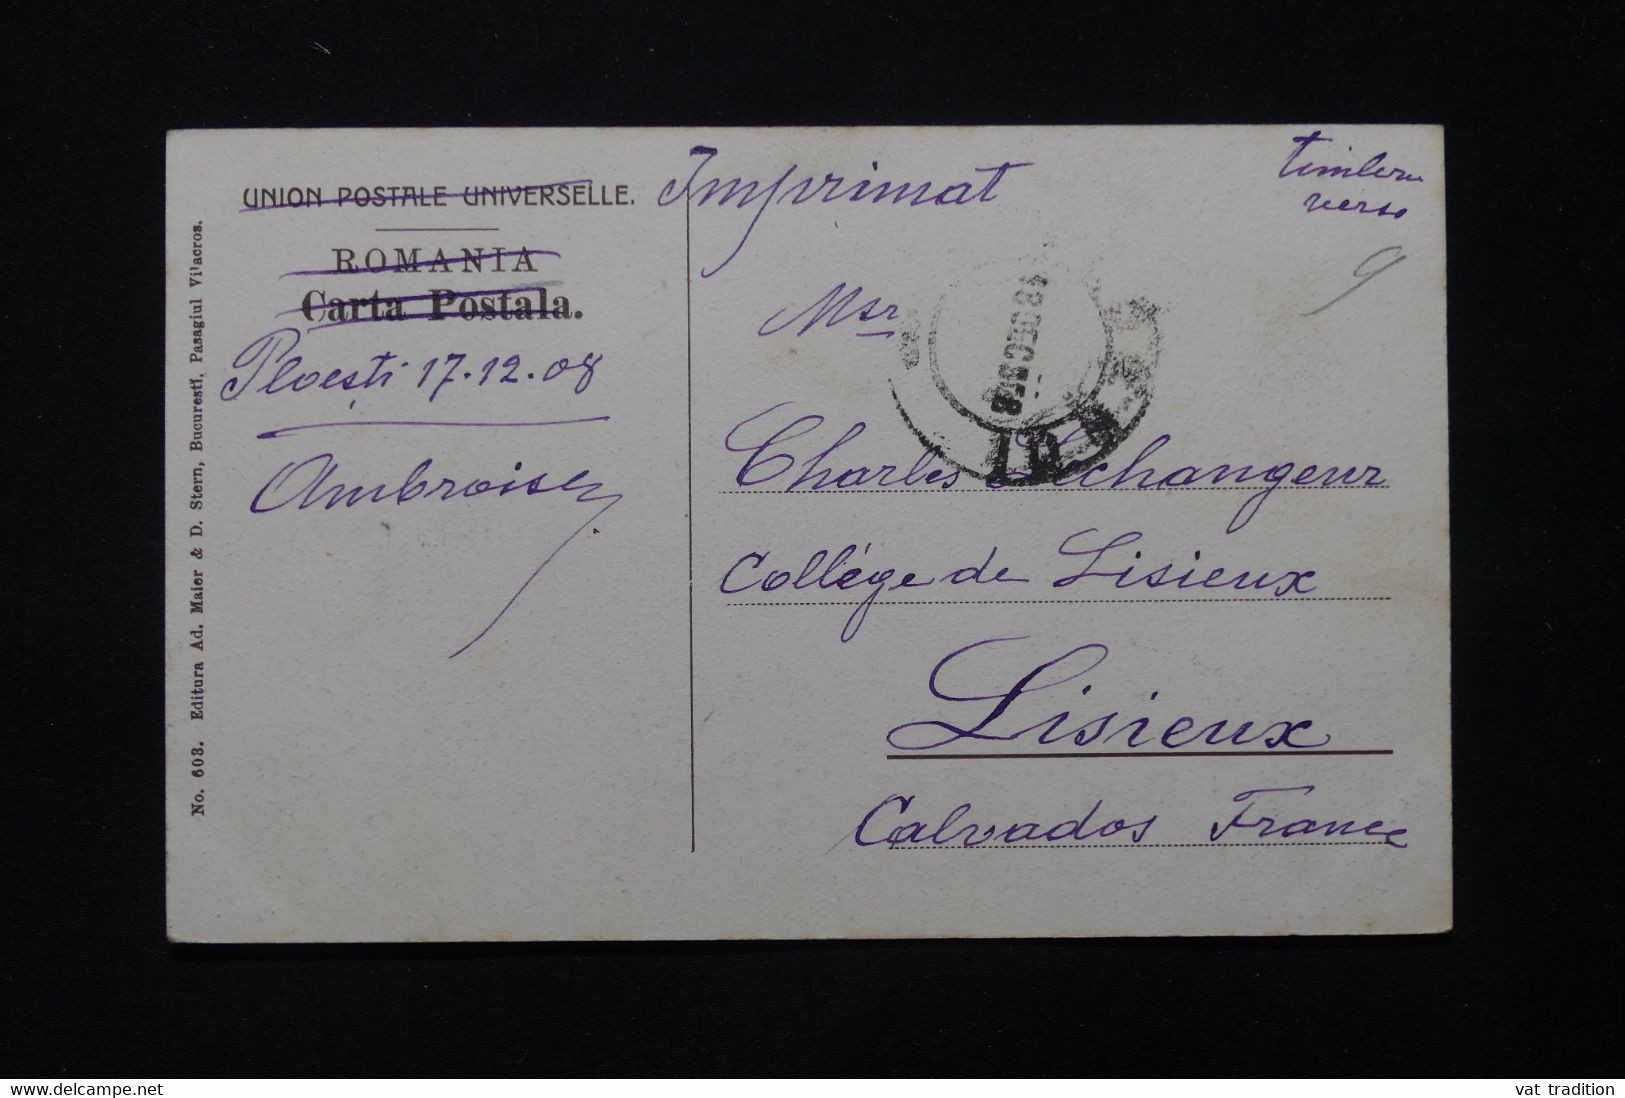 UNION POSTALE UNIVERSELLE.
ROMANIA
Carta Postala.
Ploești 17.12.08
Ambroise
No. 603. Editura Ad. Maier & D. Stern, Bucuresti, Pasagiul Vilacros.
Imprimat
timbre
verso
9
Msr
18 DEC 908
Charles Lechangeur
Collège de Lisieux
Lisieux
Calvados France
www.delcampe.net
vat_tradition